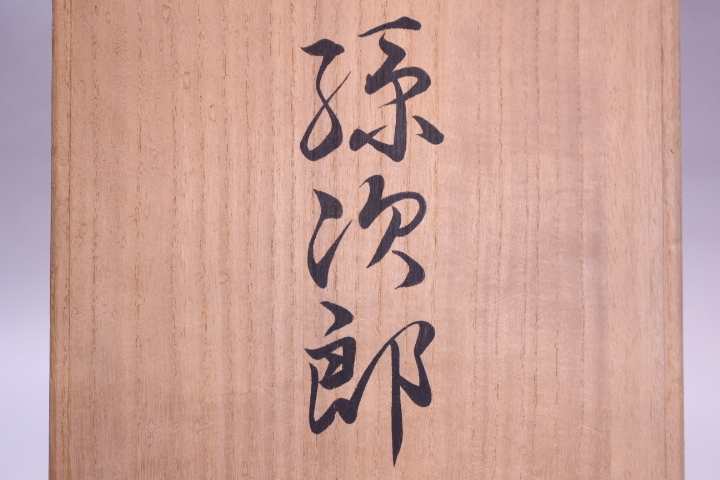 孫次郎